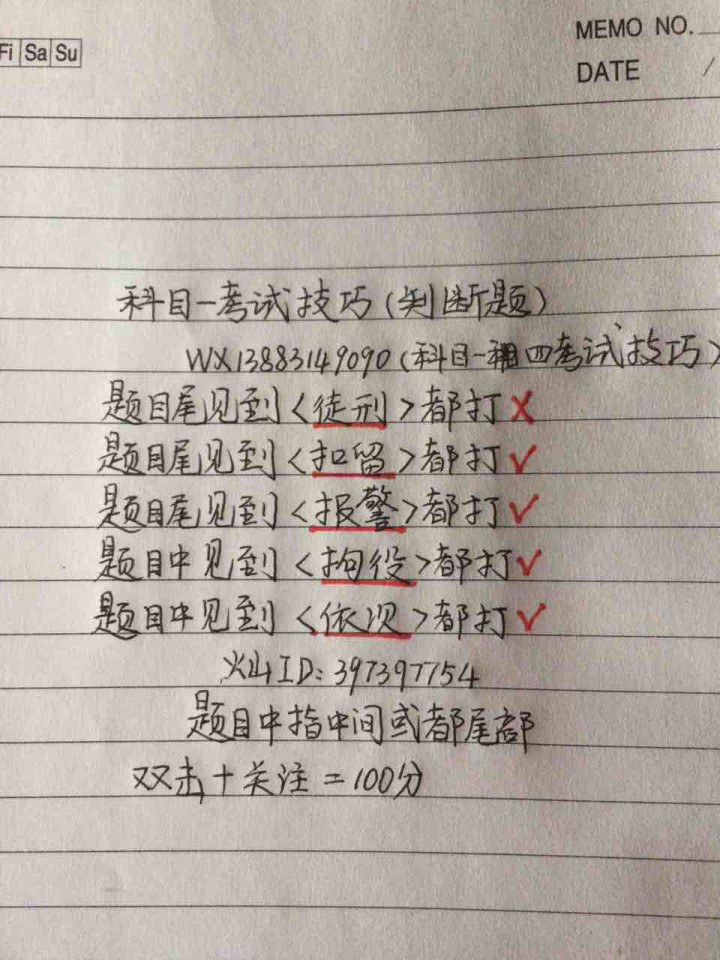 MEMO NO.
Fi Sa Su
DATE /
科目一考试技巧(判断题)
WX13883149090(科目一和四考试技巧)
题目尾见到<徒刑>都打×
题目尾见到<扣留>都打✓
题目尾见到<报警>都打✓
题目中见到<拘役>都打✓
题目中见到<依次>都打✓
火山ID:397397754
题目中指中间或都尾部
双击+关注=100分